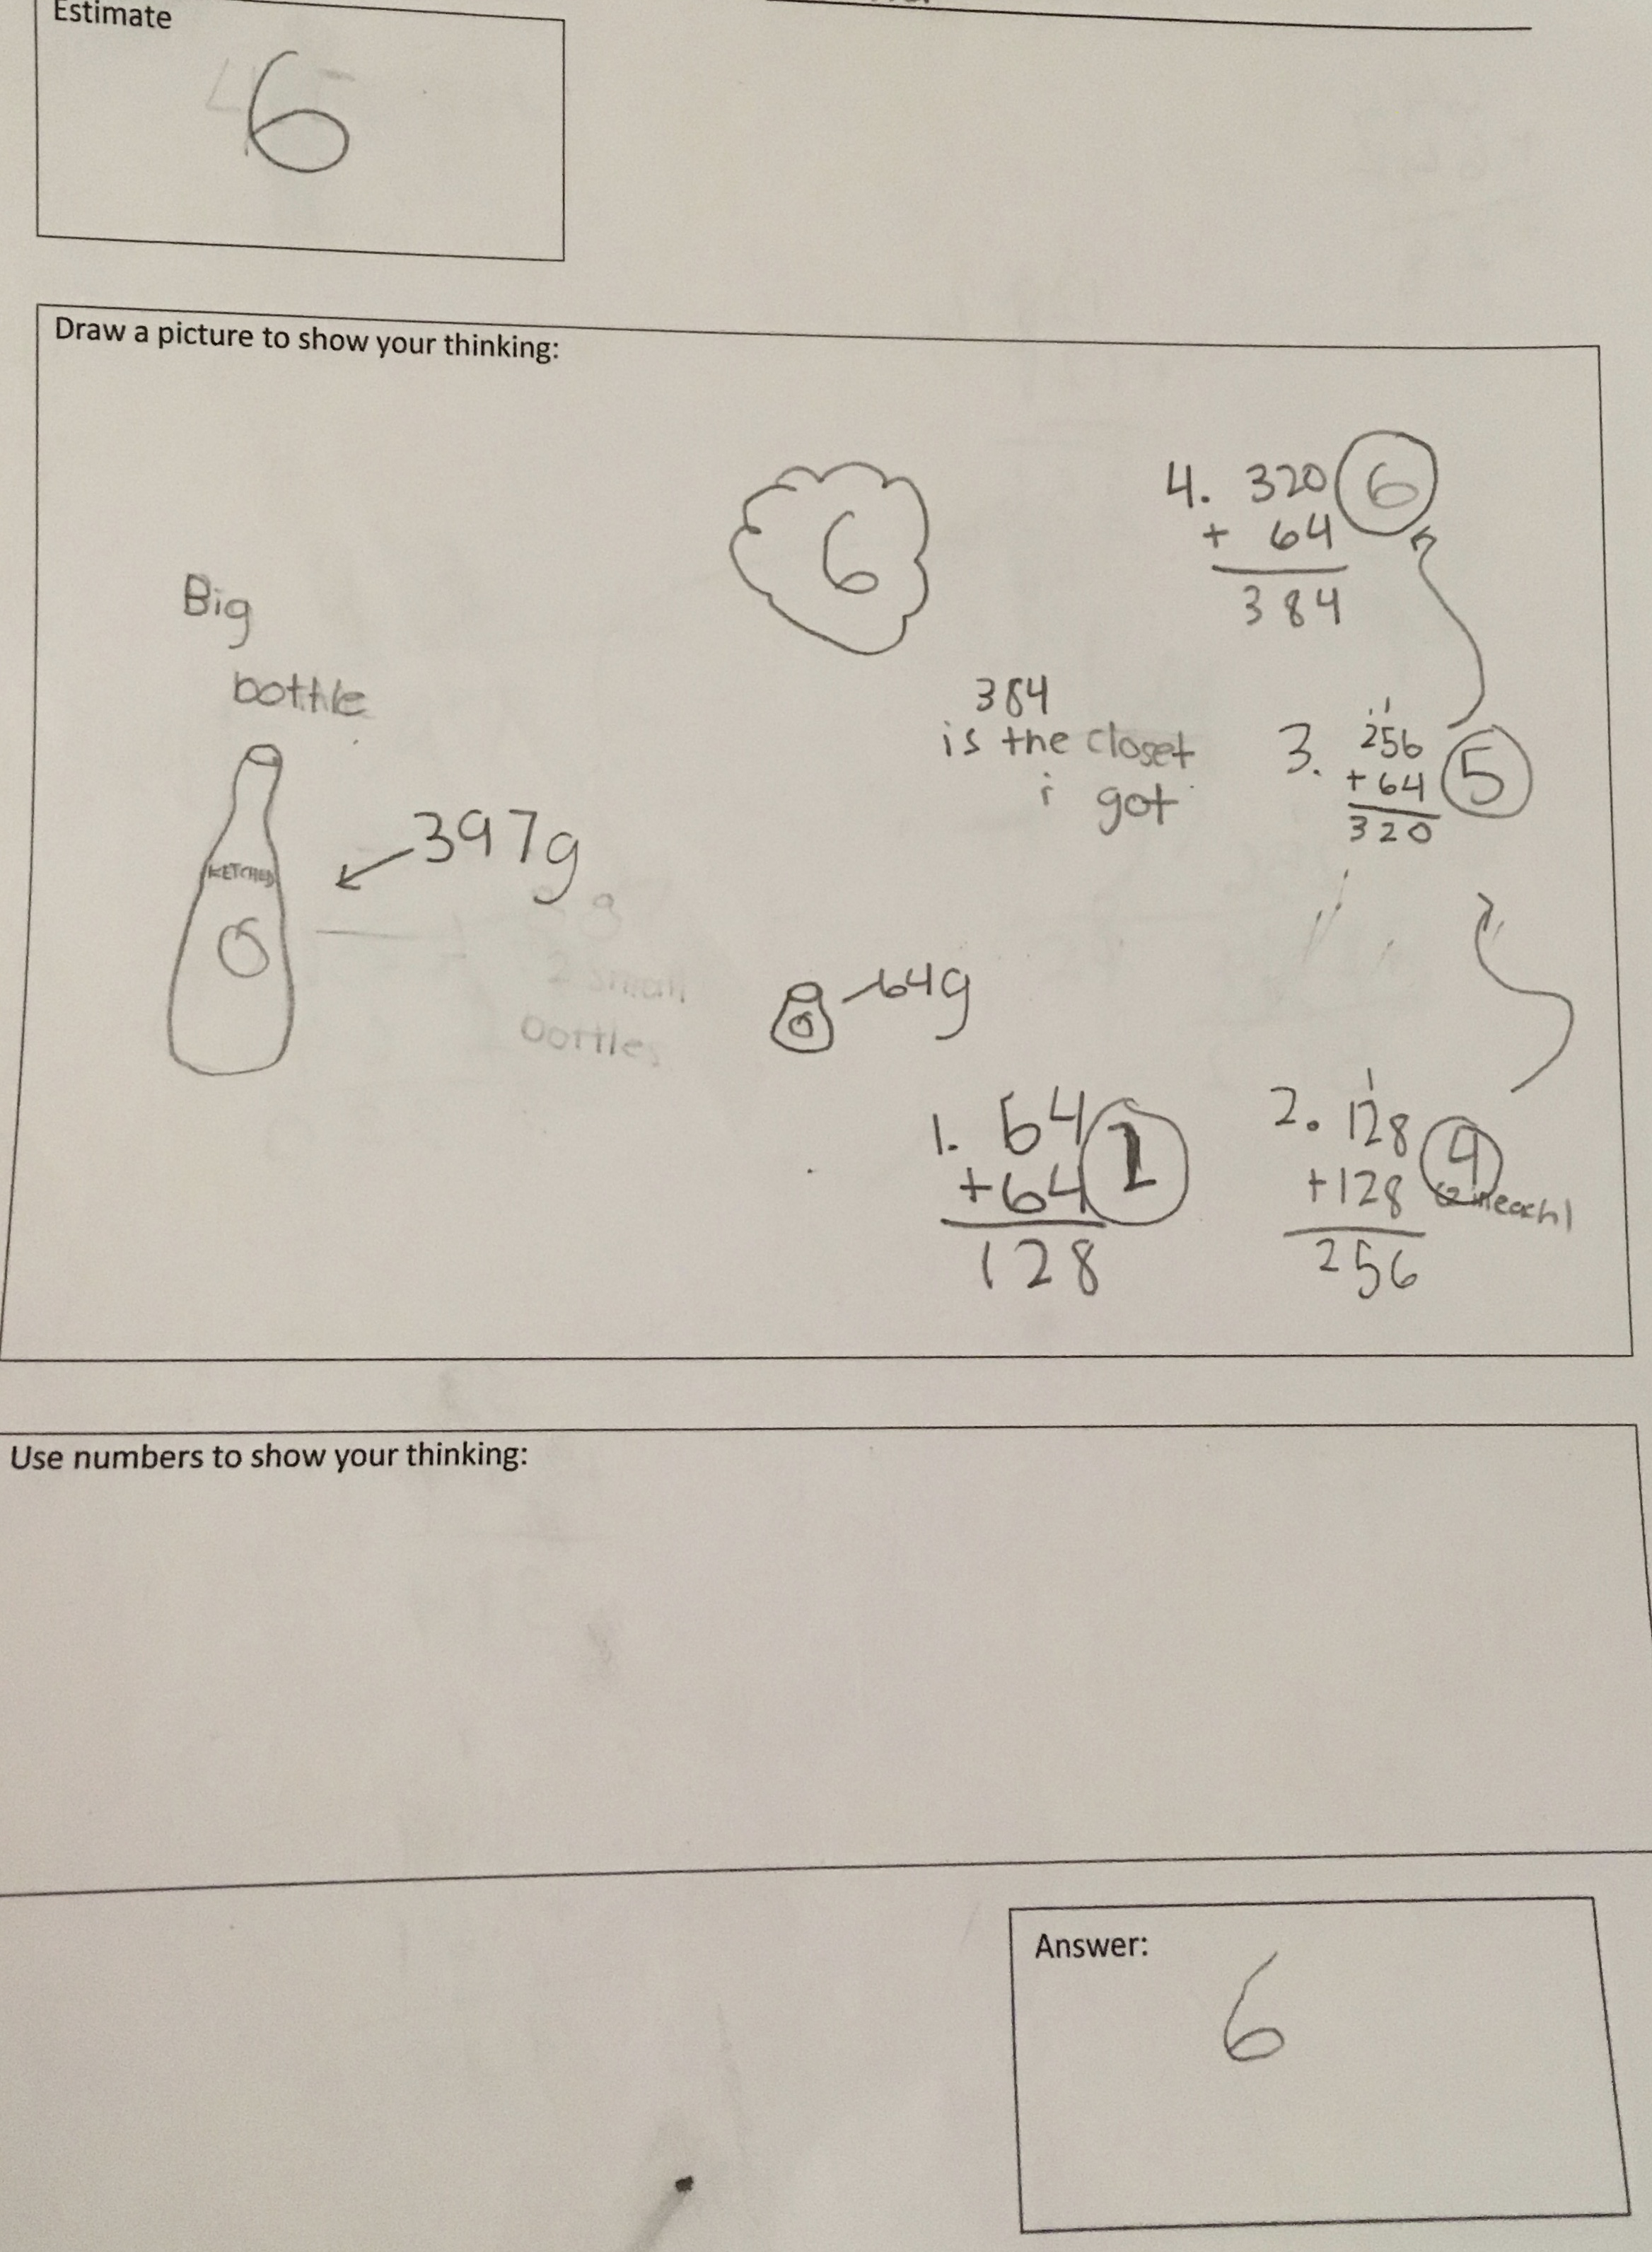 Estimate
6
Draw a picture to show your thinking:
4. 320 6
+ 64
384
6
Big
bottle
384
is the closet
i got
3. 256 5
+64
320
397g
2 small
bottles
64g
1. 64
+64
128
2. 128 4
+128
256
Use numbers to show your thinking:
Answer:
6